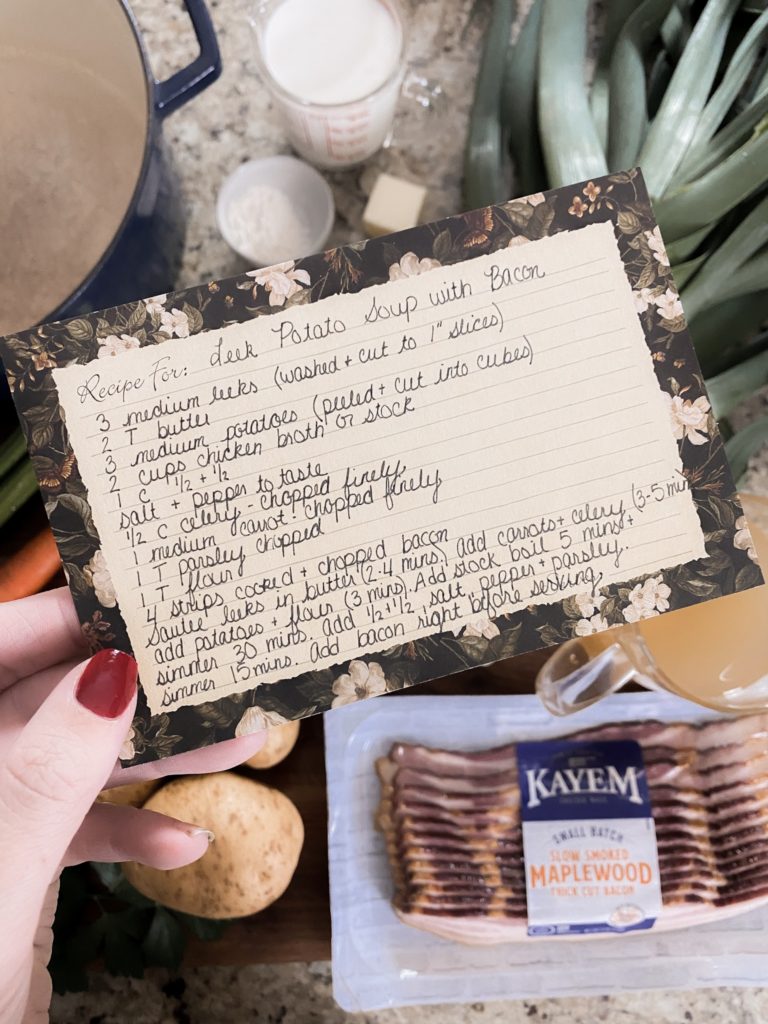 Recipe For: Leek Potato Soup with Bacon
3 medium leeks (washed + cut to 1" slices)
2 T butter
3 medium potatoes (peeled + cut into cubes)
2 cups chicken broth or stock
1 c 1/2 + 1/2
salt + pepper to taste
1/2 c celery - chopped finely
1 medium carrot - chopped finely
1 T parsley chopped
1 T flour
4 strips cooked + chopped bacon
Sautée leeks in butter (2-4 mins) add carrots + celery (3-5 min
add potatoes + flour (3 mins). Add stock boil 5 mins +
simmer 30 mins. Add 1/2 + 1/2, salt, pepper + parsley.
simmer 15 mins. Add bacon right before serving
KAYEM
SMALL BATCH
SLOW SMOKED
MAPLEWOOD
THICK CUT BACON